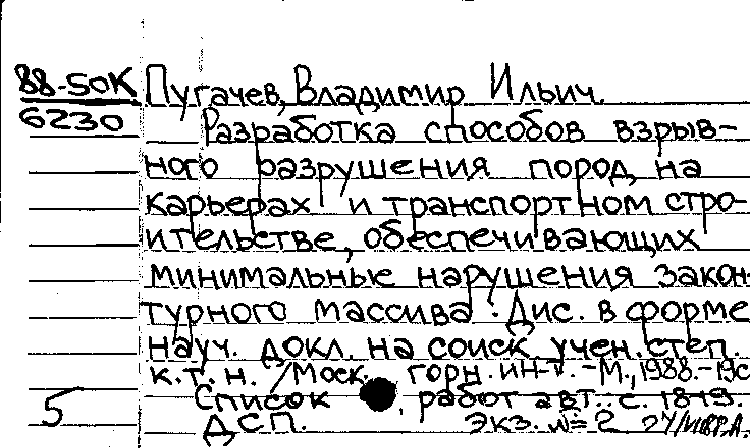 88-50К
6230
Пугачев, Владимир Ильич.
Разработка способов взрыв-
ного разрушения пород на
карьерах и транспортном стро-
ительстве, обеспечивающих
минимальные нарушения закон
турного массива : Дис. в форме
науч. докл. на соиск. учен. степ.
к.т.н. /Моск. горн. ин-т. -М., 1988.-19с
Список работ авт.: с. 18-19.
5
ДСП. Экз. №=2